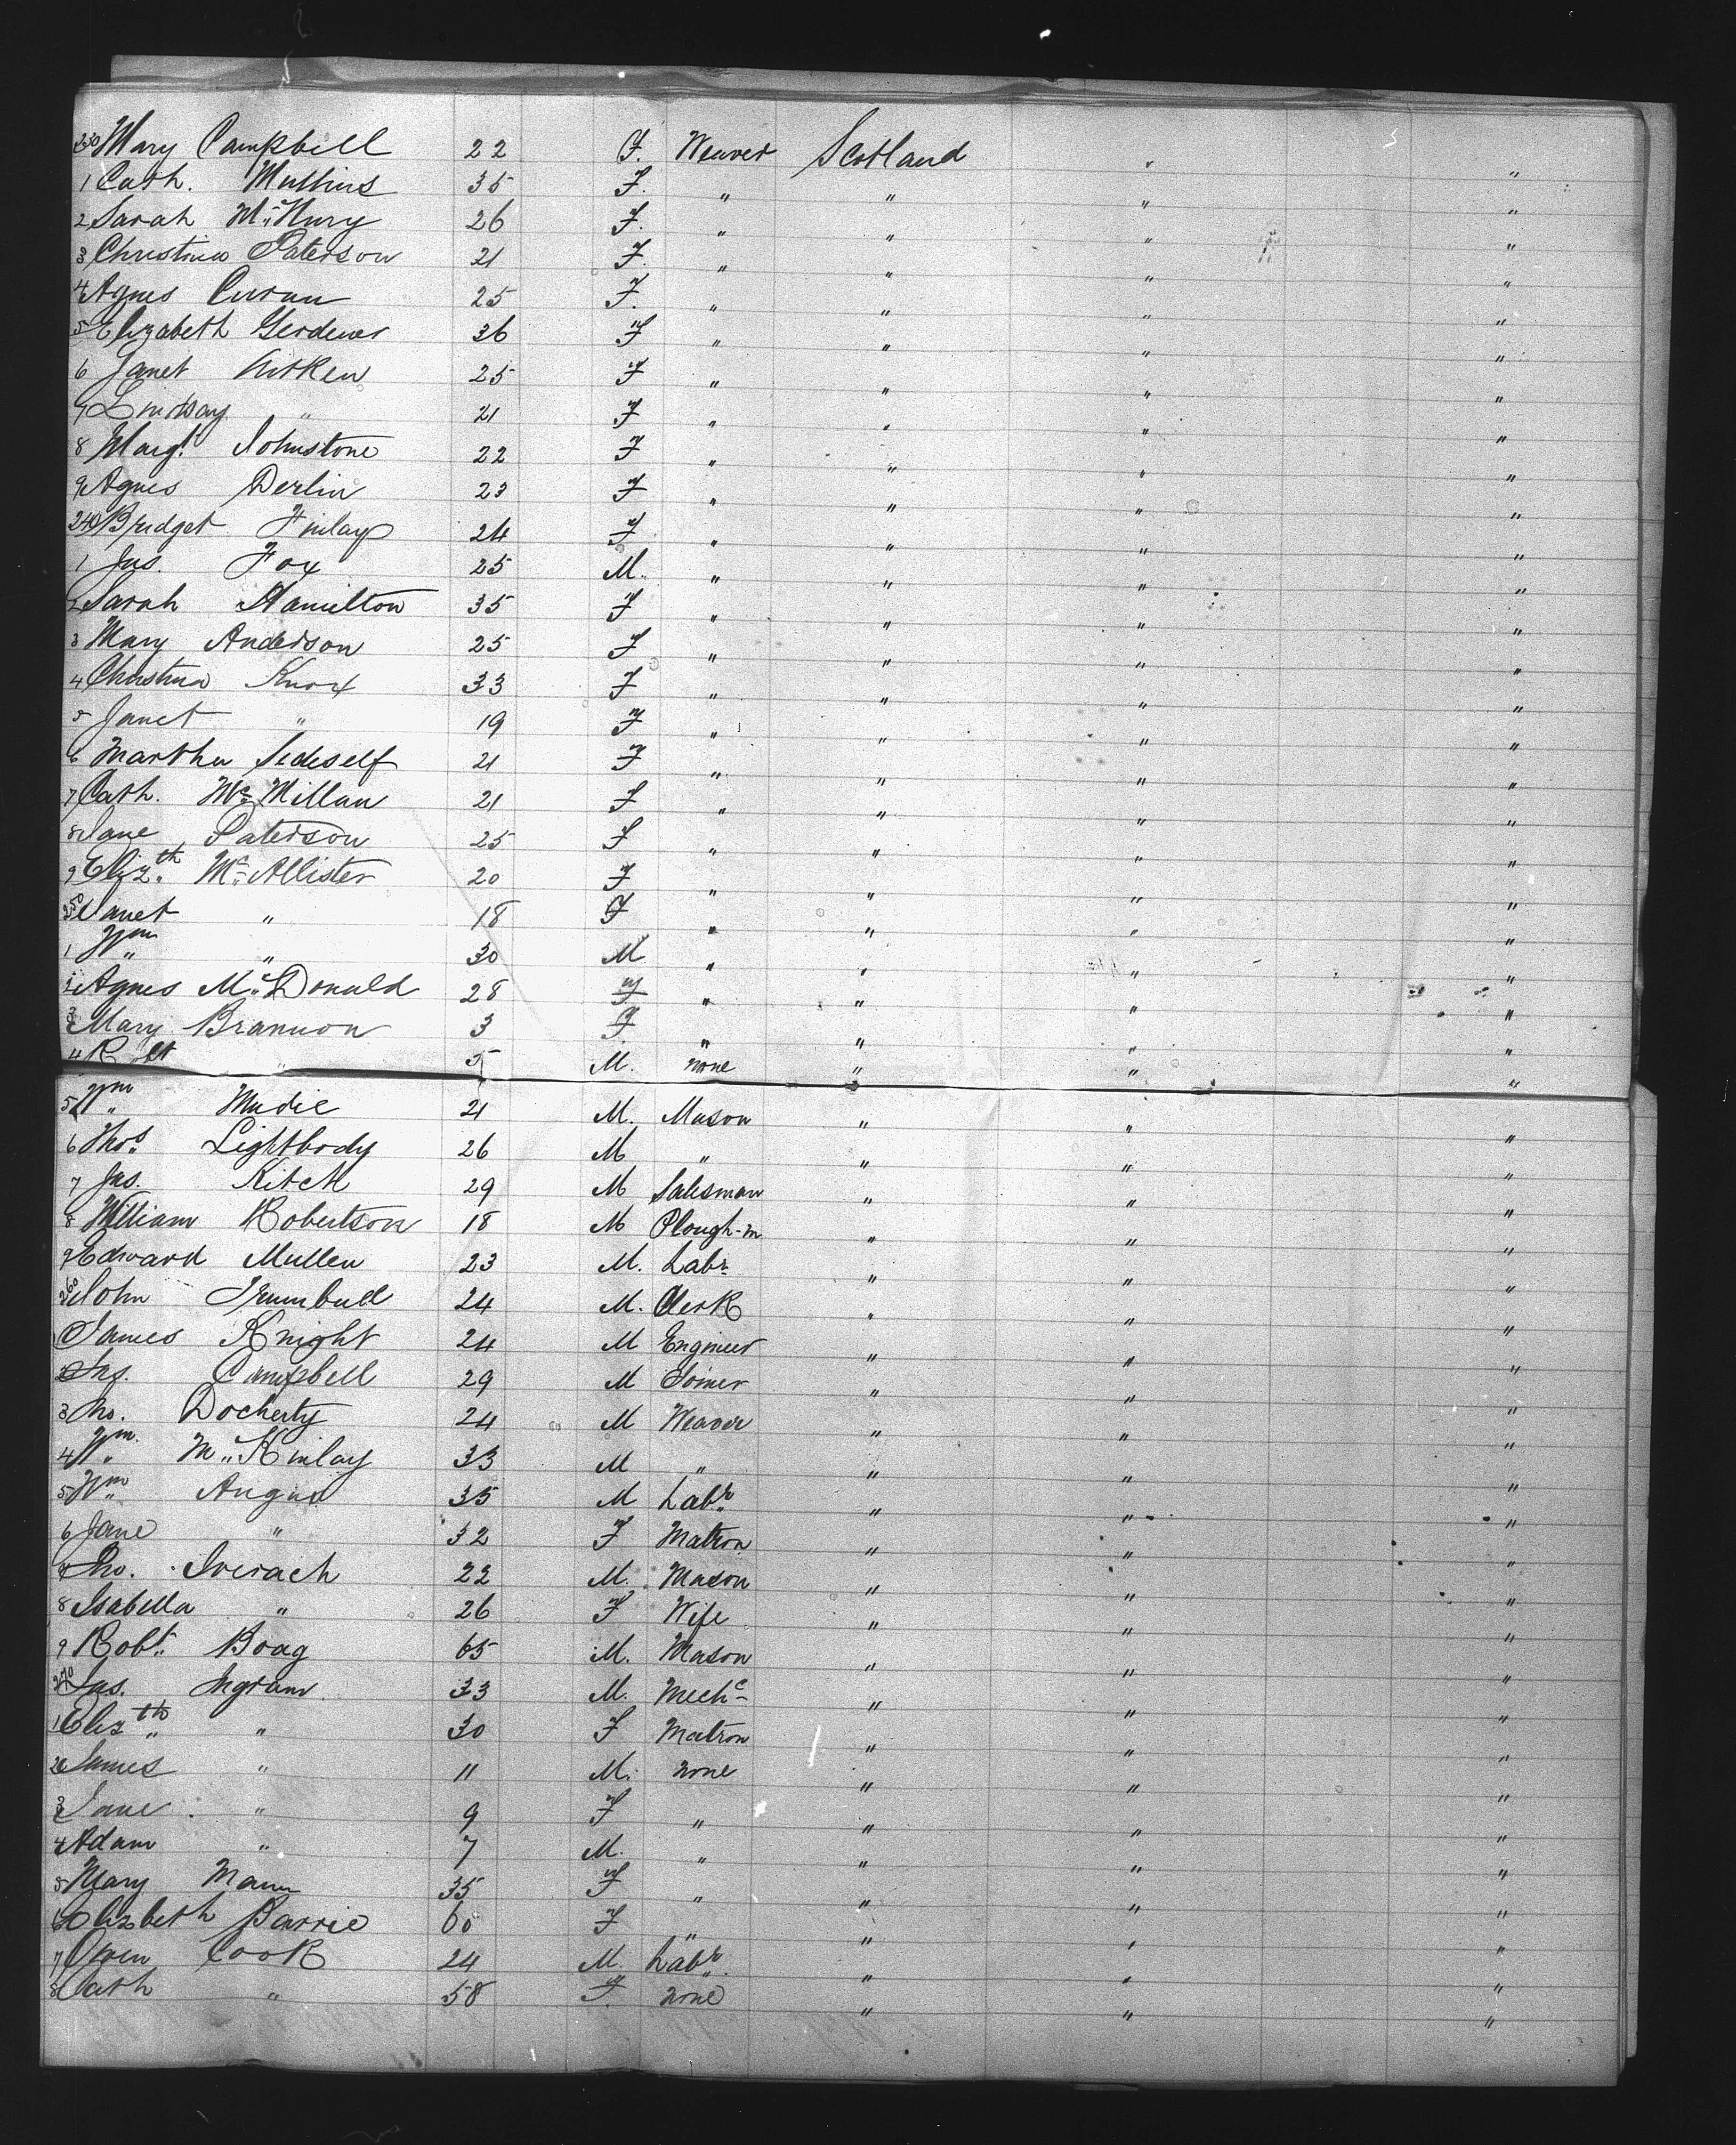 230 Mary Campbell 22 F. Weaver Scotland " "
1 Cath. Mullins 35 F. " " " "
2 Sarah Mc Hury 26 F. " " " "
3 Christina Paterson 21 F. " " " "
4 Agnes Curan 25 F. " " " "
5 Elizabeth Gerdener 36 F " " " "
6 Janet Aitken 25 F " " " "
7 Lindsay " 21 F " " " "
8 Margt. Johnstone 22 F " " " "
9 Agnes Derlin 23 F " " " "
240 Bridget Finlay 24 F " " " "
1 Jas. Fox 25 M. " " " "
2 Sarah Hamilton 35 F " " " "
3 Mary Anderson 25 F " " " "
4 Christina Knox 33 F " " " "
5 Janet " 19 F " " " "
6 Martha Sedeself 21 F " " " "
7 Cath. Mc Millan 21 F " " " "
8 Jane Paterson 25 F " " " "
9 Elizth. Mc Allister 20 F " " " "
250 Janet " 18 F " " " "
1 Wm " 30 M " " " "
2 Agnes Mc Donald 28 F " " " "
3 Mary Brannon 3 F " " " "
4 Robt " 5 M. none " " "
5 Wm Mudie 21 M. Mason " " "
6 Thos. Lightbody 26 M " " " "
7 Jas. Kitch 29 M Salesman " " "
8 William Robertson 18 M Plough-m " " "
9 Edward Mullen 23 M. Labr " " "
260 John Trumbull 24 M. Clerk " " "
1 James Knight 24 M Engineer " " "
2 Jas. Campbell 29 M Joiner " " "
3 Jno. Docherty 24 M Weaver " " "
4 Wm. Mc Kinlay 33 M " " " "
5 Wm Angus 35 M Labr " " "
6 Jane " 32 F Matron " " "
7 Jno. Iverach 22 M. Mason " " "
8 Isabella " 26 F Wife " " "
9 Robt. Boag 65 M. Mason " " "
270 Jas. Ingram 33 M. Mechc " " "
1 Elizth " 30 F Matron " " "
2 James " 11 M. none " " "
3 Jane " 9 F " " " "
4 Adam " 7 M. " " " "
5 Mary Mann 35 F " " " "
6 Elizbeth Barrie 60 F " " " "
7 Owen Cook 24 M. Labr. " " "
8 Cath " 58 F. none " " "